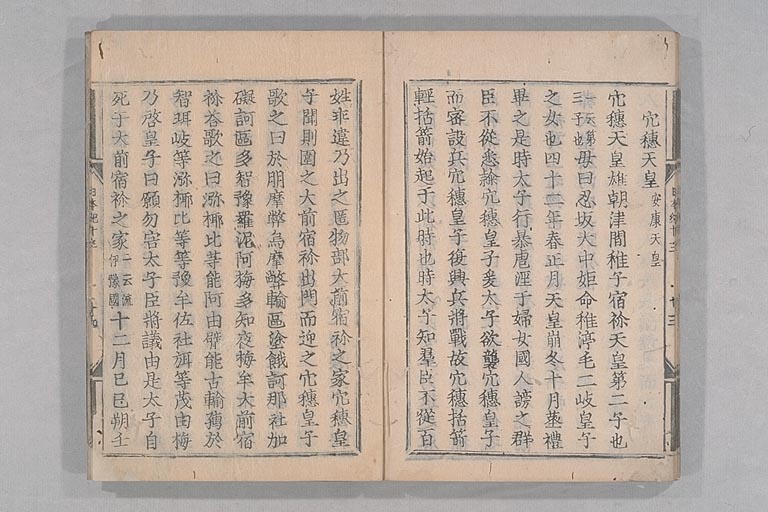 穴穗天皇 安康天皇
穴穗天皇雄朝津間稚子宿祢天皇第二子也
一云第三子也母曰忍坂大中姬命稚渟毛二岐皇子
之女也四十二年春正月天皇崩冬十月葬禮
畢之是時太子行暴虐淫于婦女國人謗之群
臣不從悉隸穴穗皇子爰太子欲襲穴穗皇子
而密設兵穴穗皇子復興兵將戰故穴穗括箭
輕括箭始起于此時也時太子知羣臣不從百
姓乖違乃出之匿物部大前宿祢之家穴穗皇
子聞則圍之大前宿祢出門而迎之穴穗皇子
歌之曰於朋摩弊烏摩弊輸區泥餓訶那杜加
礙訶區多智豫羅泥阿梅多知夜梅牟大前宿
祢答歌之曰瀰椰比等能阿由臂能古輸孺於
智珥岐等瀰椰比等等豫牟佐杜弭等茂由梅
乃啓皇子曰願勿害太子臣將議由是太子自
死于大前宿祢之家一云流伊豫國十二月己巳朔壬